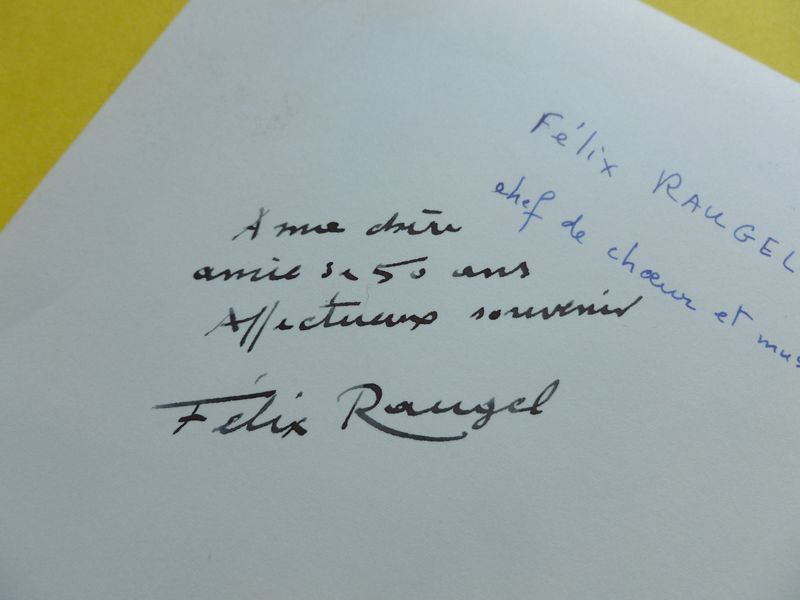 A une chère
amie de 50 ans
Affectueux souvenir
Félix Raugel
Félix RAUGEL
chef de chœur et mus